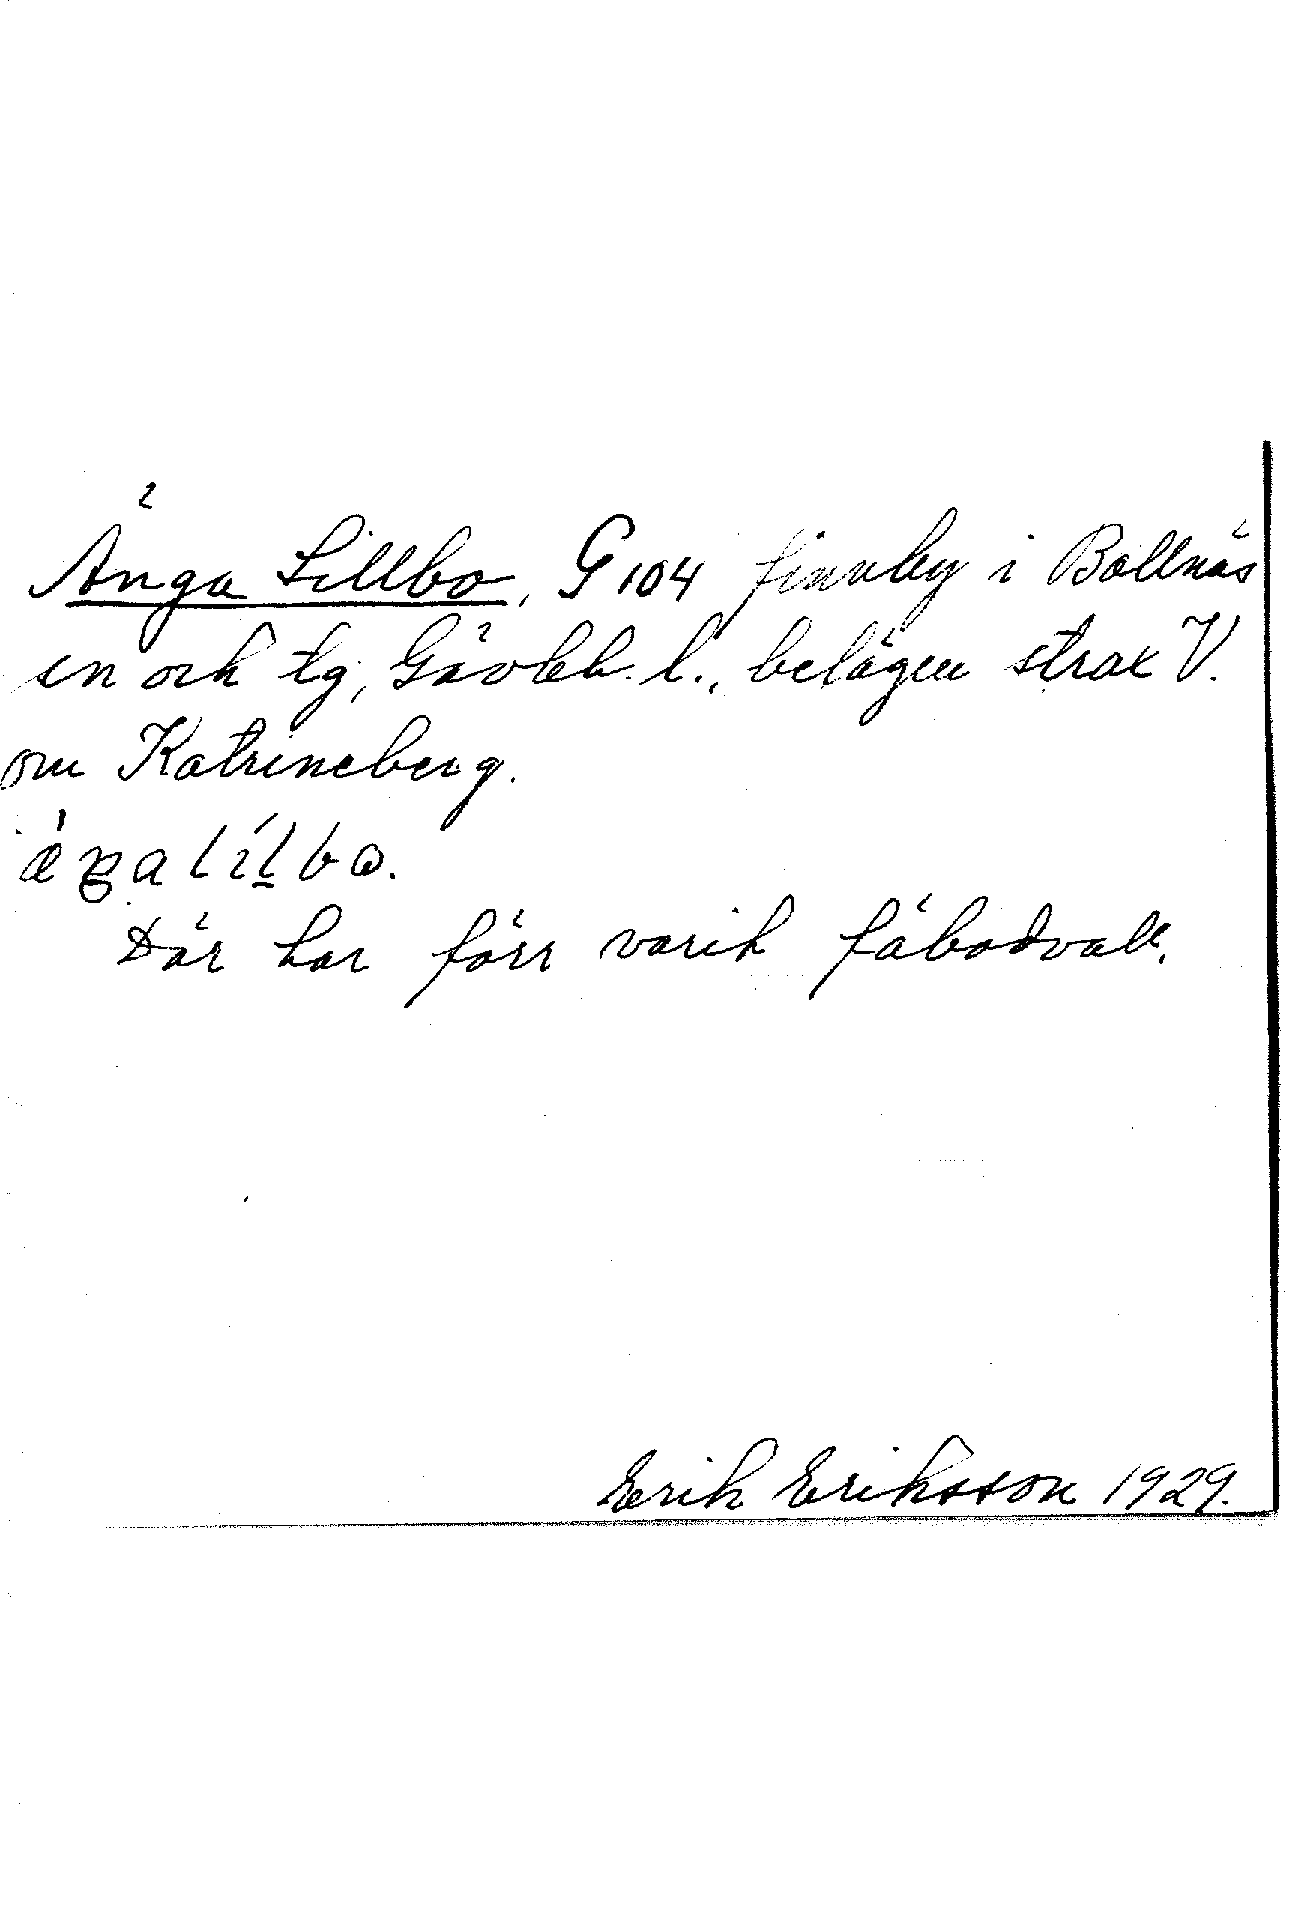 Änga Lillbo, G 104 finnby i Bollnäs
sn och tg, Gävleb. l., belägen strax V.
om Katrineberg.
Där har förr varit fäbodvall.
Erik Eriksson 1929.